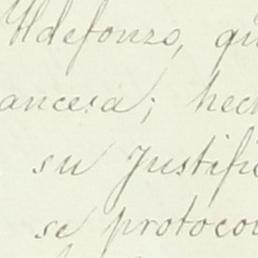 Ildefonzo, qu
ancesa; hech
su Justifi
se protoco